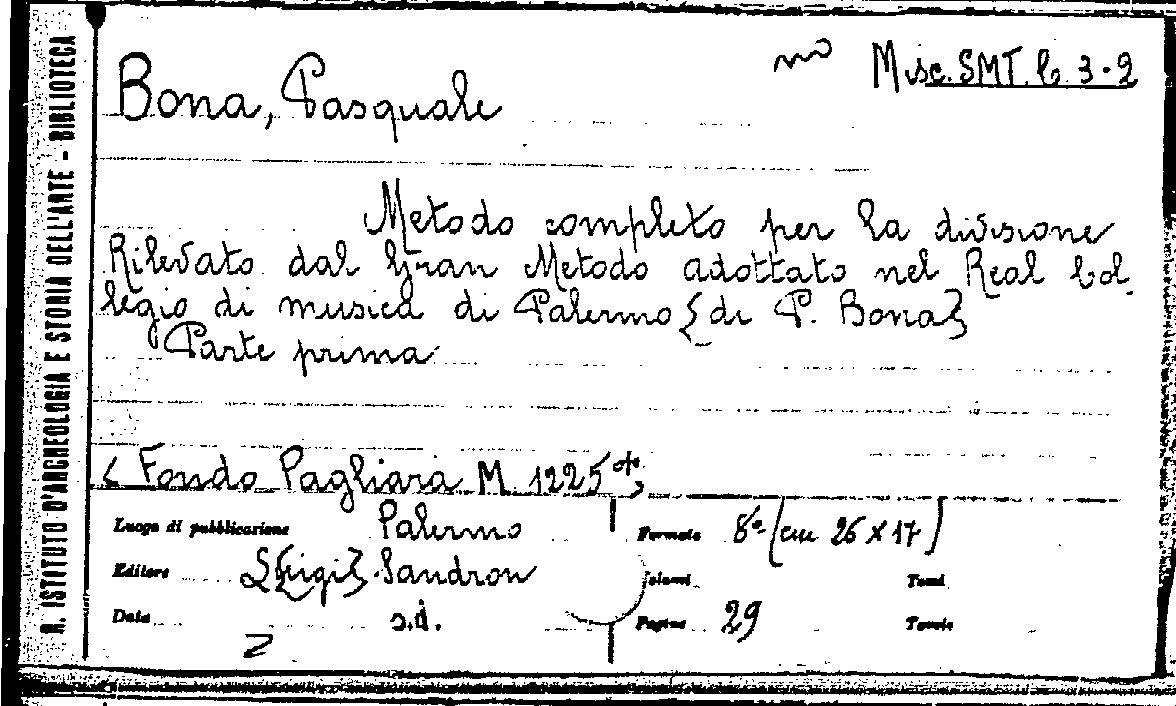 R. ISTITUTO D'ARCHEOLOGIA E STORIA DELL'ARTE - BIBLIOTECA
Misc. SMT. C. 3.2
Bona, Pasquale
Metodo completo per la divisione
Rilevato dal Gran Metodo adottato nel Real Col-
legio di musica di Palermo {di P. Bona}
Parte prima
< Fondo Pagliara M 1225 >
Luogo di pubblicazione Palermo
Formato 8º [cm 25 x 17]
Editore L{uigi} Sandron
Volumi Tomi
Data s.d.
Pagine 29 Tavole